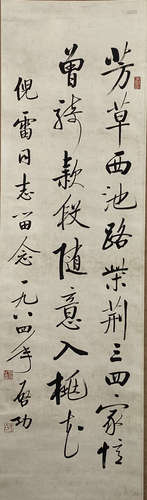 芳草西池路柴荆三四家忆
曾骑款段随意入桃花
倪雷同志留念一九八四年启功